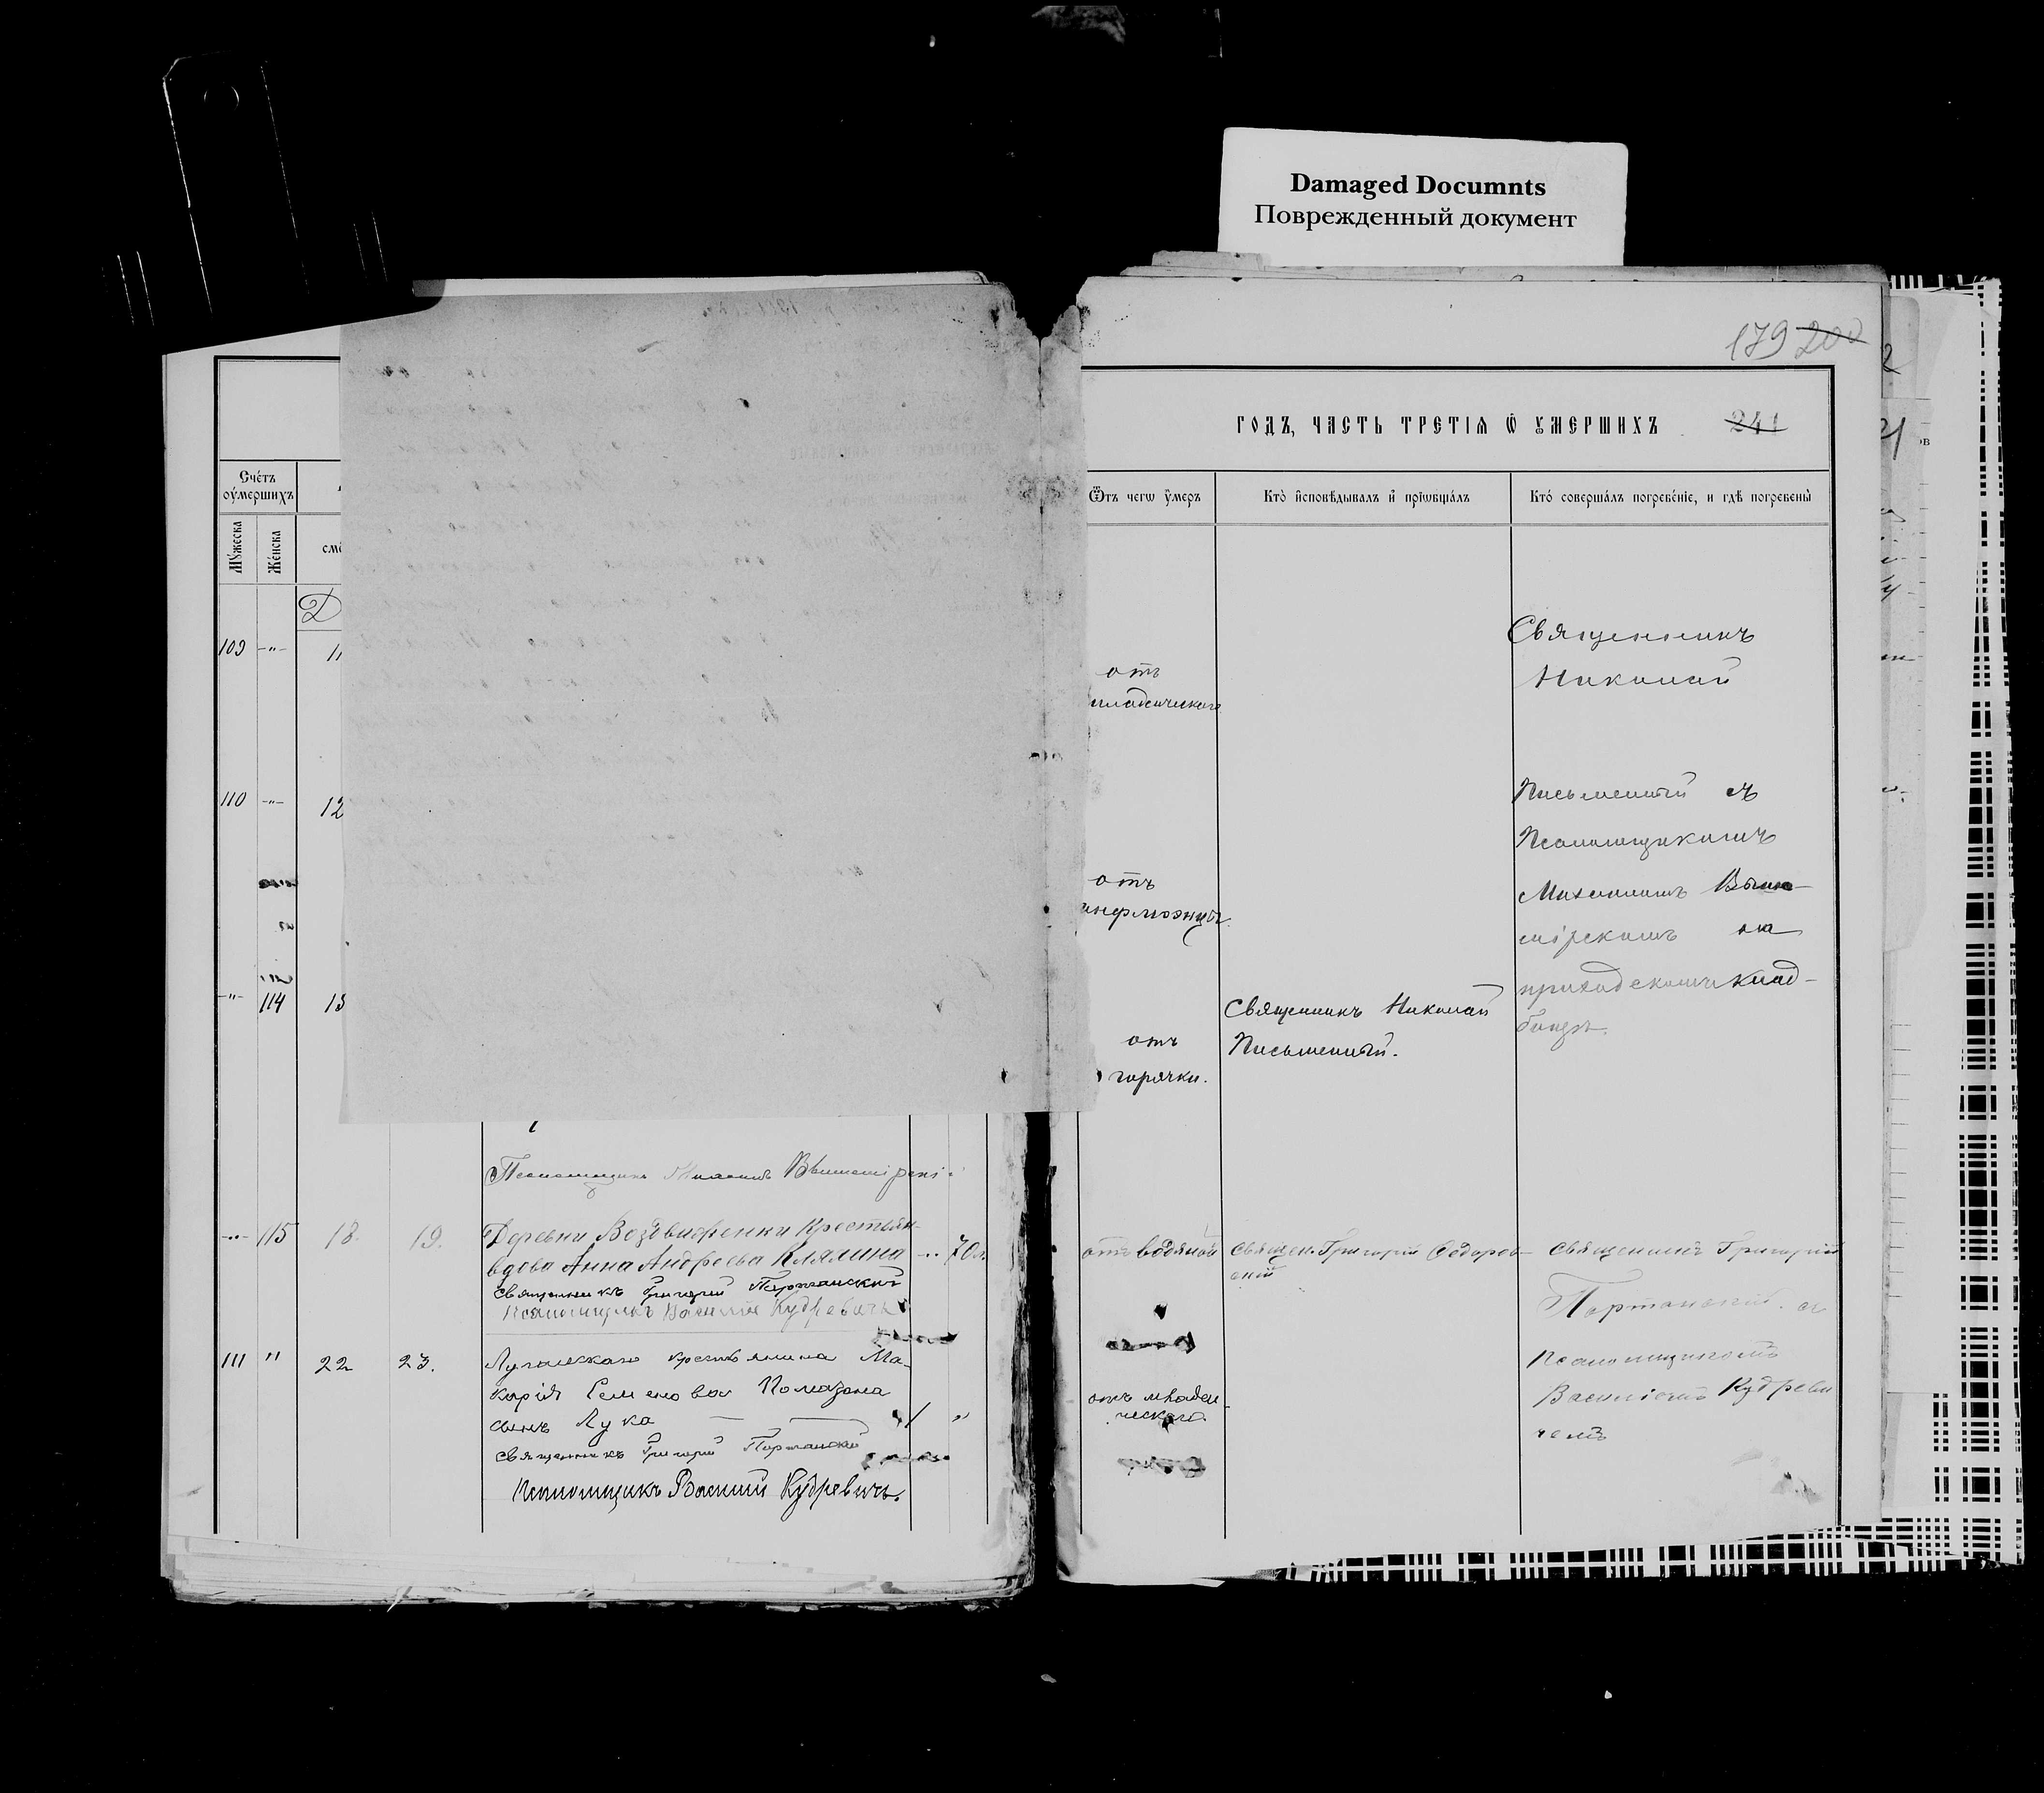 Damaged Documnts
Поврежденный документ
179 200
ГОДЪ, ЧАСТЬ ТРЕТІѦ Ѿ ОУМЕРШИХЪ 241
Счéтъ
оумершихъ
Мꙋжеска
Женска
Ѿтъ чегѡ ᲂумеръ
Кто исповѣдывалъ и прїѡбщалъ
Кто совершалъ погребенїе, и гдѣ погребены
Д
109 -"- 11
отъ
младенческаго
Священникъ
Николай
110 -"- 12
отъ
инфлюэнцы
Письменный съ
Псаломщикомъ
Михаиломъ
на
приходскомъ клад-
бищѣ.
-"- 114 13
отъ
горячки.
Священникъ Николай
Письменный.
Псаломщикъ
-"- 115 18. 19.
Деревни Воздвиженки крестьян-
вдова Анна Андреева Клялина -"- 70 л.
Священникъ Григорій Портанскій
Псаломщикъ Василій Кудревичъ
отъ водяной
Священ. Григорій Федоров-
скій
Священникъ Григорій
Портанскій съ
Псаломщикомъ
Василіемъ Кудреви
чемъ
111 " 22 23.
крестьянина Ма-
карія Семенова Помазана
сынъ Лука 1 "
Священникъ Григорій Портанскій
Псаломщикъ Василій Кудревичъ.
отъ младен-
ческаго